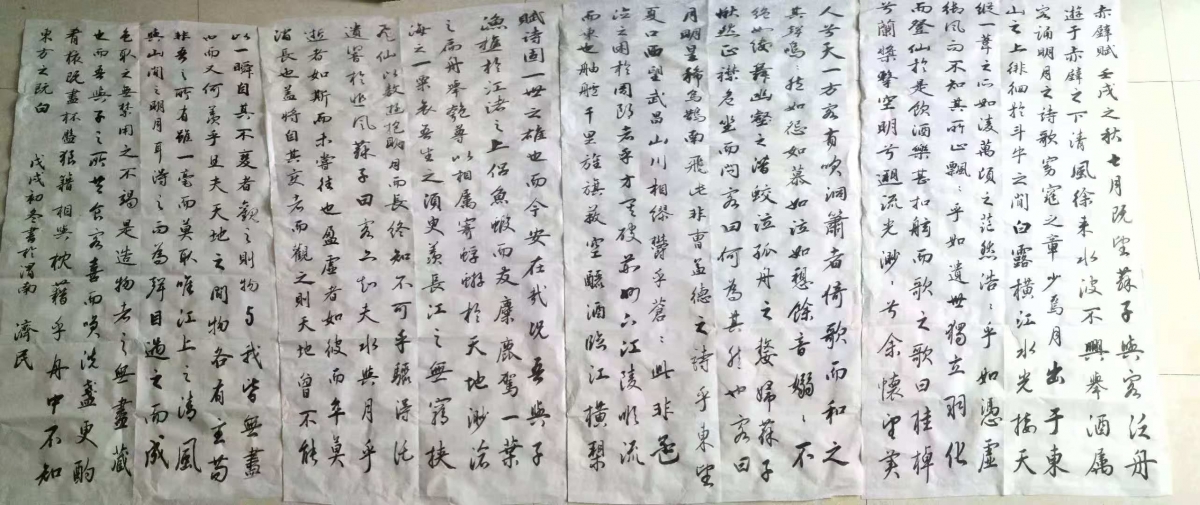 赤壁赋壬戌之秋七月既望苏子與客泛舟
遊于赤壁之下清風徐来水波不興舉酒属
客诵明月之诗歌窈窕之章少焉月出于東
山之上徘徊於斗牛之间白露横江水光接天
縱一葦之所如凌萬頃之茫然浩:乎如憑虚
御风而不知其所止飘:乎如遗世獨立羽化
而登仙於是饮酒樂甚扣舷而歌之歌曰桂棹
兮蘭槳擊空明兮遡流光渺:兮余懷望美
人兮天一方客有吹洞簫者倚歌而和之
其聲嗚:然如怨如慕如泣如愬餘音嫋:不
绝如缕舞幽壑之潜蛟泣孤舟之嫠婦蘇子
愀然正襟危坐而问客曰何為其然也客曰
月明星稀乌鹊南飛此非曹孟德之诗乎東望
夏口西望武昌山川相缪鬱乎蒼:此非孟
泣之困於周郎者乎方其破荊州下江陵顺流
而東也舳舻千里旌旗蔽空釃酒臨江横槊
赋诗固一世之雄也而今安在哉况吾與子
渔樵於江渚之上侣魚蝦而友麋鹿驾一葉
之扁舟举匏尊以相属寄蜉蝣於天地渺滄
海之一粟哀吾生之须臾羡長江之無窮挾
飛仙以遨遊抱明月而長终知不可乎驟得托
遗響於悲风蘇子曰客亦知夫水與月乎
逝者如斯而未嘗往也盈虚者如彼而卒莫
消長也盖将自其变者而觀之则天地曾不能
以一瞬自其不变者觀之则物与我皆無盡
也而又何羡乎且夫天地之間物各有主苟
非吾之所有雖一毫而莫取唯江上之清風
與山间之明月耳得之而為聲目遇之而成
色取之無禁用之不竭是造物者之無盡藏
也而吾與子之所共食客喜而笑洗盏更酌
肴核既盡杯盤狼籍相與枕藉乎舟中不知
東方之既白
戊戌初冬書於渭南
濟民